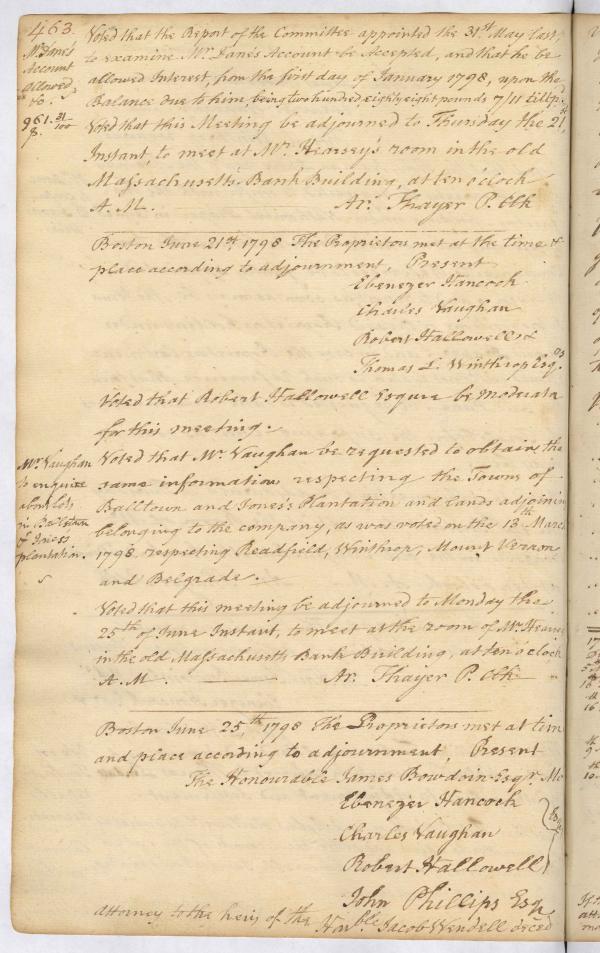 463.
Voted that the Report of the Committee appointed the 31st May last,
to examine Mr Lane's Account be Accepted, and that he be
allowed Interest, from the first day of January 1798, upon the
Balance due to him, being two hundred, eighty eight pounds 7/11 till p.d
Mr Lane's
Account
allowed
961. 31/100
Voted that this Meeting be adjourned to Thursday the 21st
Instant, to meet at Mr. Hearsey's room in the old
Massachusetts Bank Building, at ten o'clock
A.M. Ar. Thayer P. Clk
Boston June 21st, 1798 The Proprietors met at the time &
place according to adjournment, Present
Ebenezer Hancock
Charles Vaughan
Robert Hallowell &
Thomas L. Winthrop Esqrs
Voted that Robert Hallowell Esquire be Moderator
for this meeting.
Mr. Vaughan
to enquire
about lots
in Balltown
& Jones's
plantation.
Voted that Mr. Vaughan be requested to obtain the
same information respecting the Towns of
Balltown and Jones's Plantation and Lands adjoining
belonging to the company, as was voted on the 13th March
1798. respecting Readfield, Winthrop, Mount Vernon,
and Belgrade.
Voted that this meeting be adjourned to Monday the
25th of June Instant, to meet at the room of Mr. Hearsey
in the old Massachusetts Bank Building, at ten o'clock
A.M. Ar. Thayer P. Clk
Boston June 25,th 1798 The Proprietors met at time
and place according to adjournment, Present
The Honourable James Bowdoin Esqr. Mo
Ebenezer Hancock
Charles Vaughan
Robert Hallowell
John Phillips Esq
attorney to the heirs of the Honble Jacob Wendell deced